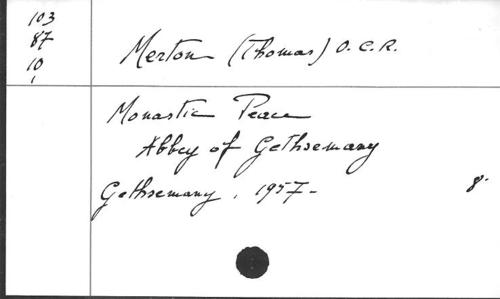 103
87
10
1
Merton (Thomas) O.C.R.
Monastic Peace
Abbey of Gethsemany
Gethsemany, 1957-
8°